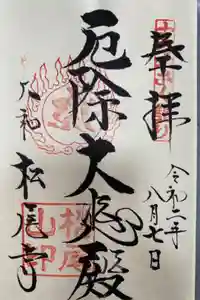 奉拝
令和二年
八月七日
厄除大悲殿
大和 松尾寺
松尾
山印